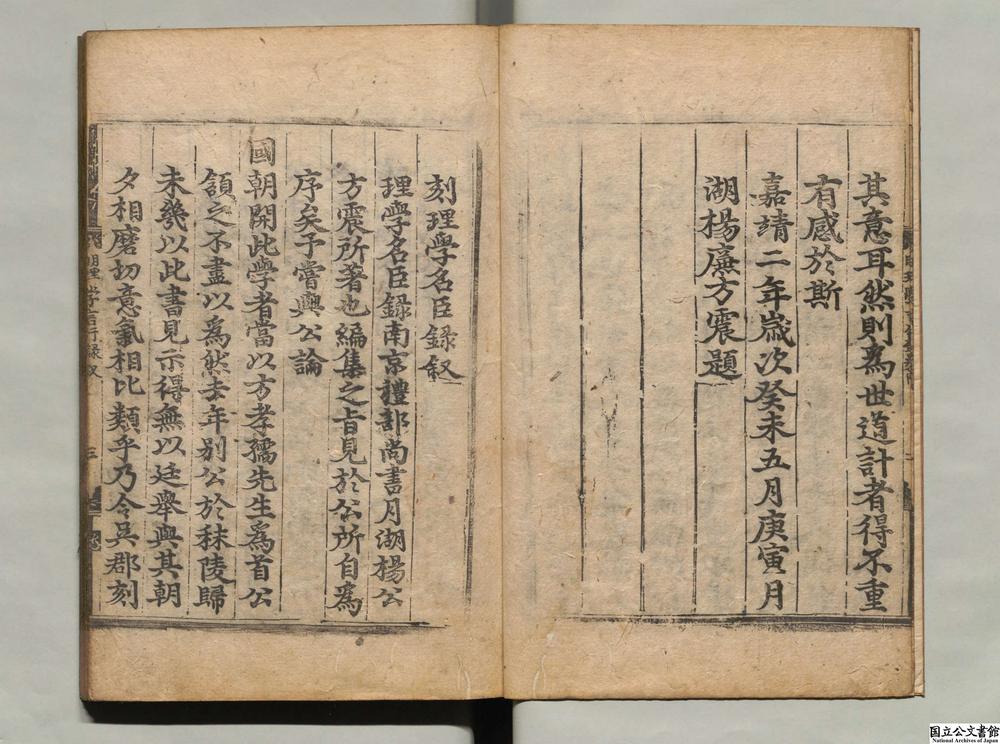 其意耳然則為世道計者得不重
有感於斯
嘉靖二年歲次癸未五月庚寅月
湖楊廉方震題
刻理學名臣錄叙
理學名臣録南京禮部尚書月湖楊公
方震所著也編集之旨見於公所自為
序矣予嘗與公論
國朝開此學者當以方孝孺先生為首公
頷之不盡以為然去年別公於秣陵歸
未幾以此書見示得無以廷舉與其朝
夕相磨切意氣相比類乎乃令吳郡刻
三
国立公文書館
National Archives of Japan